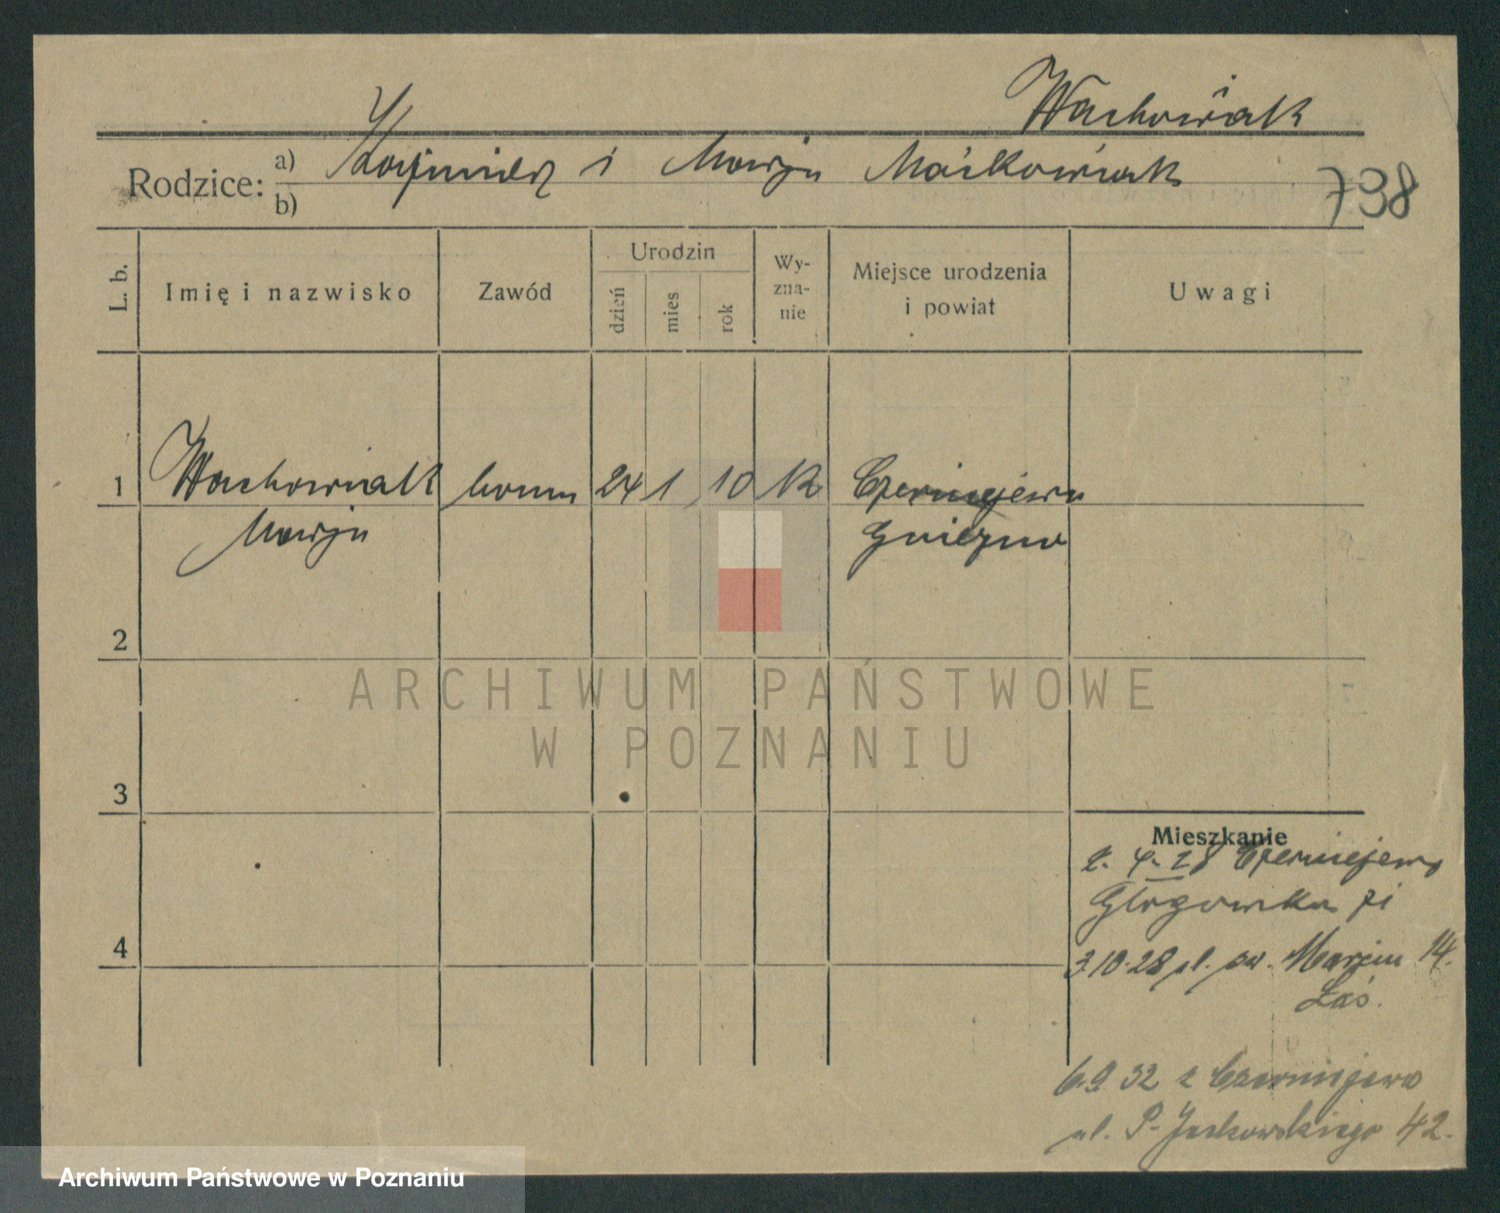 Wachowiak
Rodzice: a) Kazimierz i Marja Maćkowiak
b)
738
L. b.
Imię i nazwisko
Zawód
Urodzin
dzień
mies
rok
Wy-
zna-
nie
Miejsce urodzenia
i powiat
Uwagi
1 Wachowiak 24 1 10 k Czerniejewo
Marja Gniezno
2
ARCHIWUM PAŃSTWOWE
W POZNANIU
3
Mieszkanie
4. 28 Czerniejewo
4
3.10.28 pl. św. Marcin 14.
6.9 32 z Czerniejewo
ul. P. Jackowskiego 42.
Archiwum Państwowe w Poznaniu